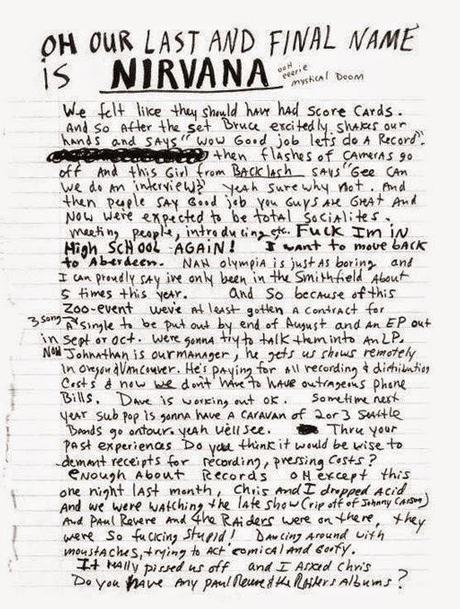 OH OUR LAST AND FINAL NAME
iS NIRVANA ooH eeerie mystical Doom
We felt like they should have had Score Cards.
And so After the set Bruce excitedly shakes our
hands and says "wow Good job lets do A Record".
then flashes of Cameras go
off And this Girl from BACKLash says "Gee can
we do an interview? yeah sure why not. And
then people say Good job you guys are Great And
Now were expected to be total socialites.
meeting people, introducing etc. FUCK Im iN
High SCHOOL AGAiN! I want to move BACK
to Aberdeen. NAH olympia is just as boring and
I can proudly say ive only been in the Smithfield About
5 times this year. And So because of this
Zoo-event weve at least gotten A contract for
3 song A single to be put out by end of August and an EP out
in Sept or Oct. were gonna try to talk them into An LP.
NOW Johnathan is our manager, he gets us shows remotely
in oregon & Vancouver. He's paying for All recording & distribution
Costs & now we don't have to have outrageous phone
Bills. Dave is working out ok. Sometime next
year Sub pop is gonna have A CARAVAN of 2 or 3 seattle
Bands go on tour. yeah well see. Thru your
PAST experiences Do you think it would be wise to
demant receipts for recording, pressing Costs?
enough About Records oH except this
one night last month, Chris And I dropped acid
And we were watching the late show (rip off of Johnny Carson)
And Paul Revere And the RAiders were on there, they
were So fucking stupid! Dancing around with
moustaches, trying to Act comical And Goofy.
It Really pissed us off and I Asked Chris
Do you have Any Paul Revere & the Raiders Albums?